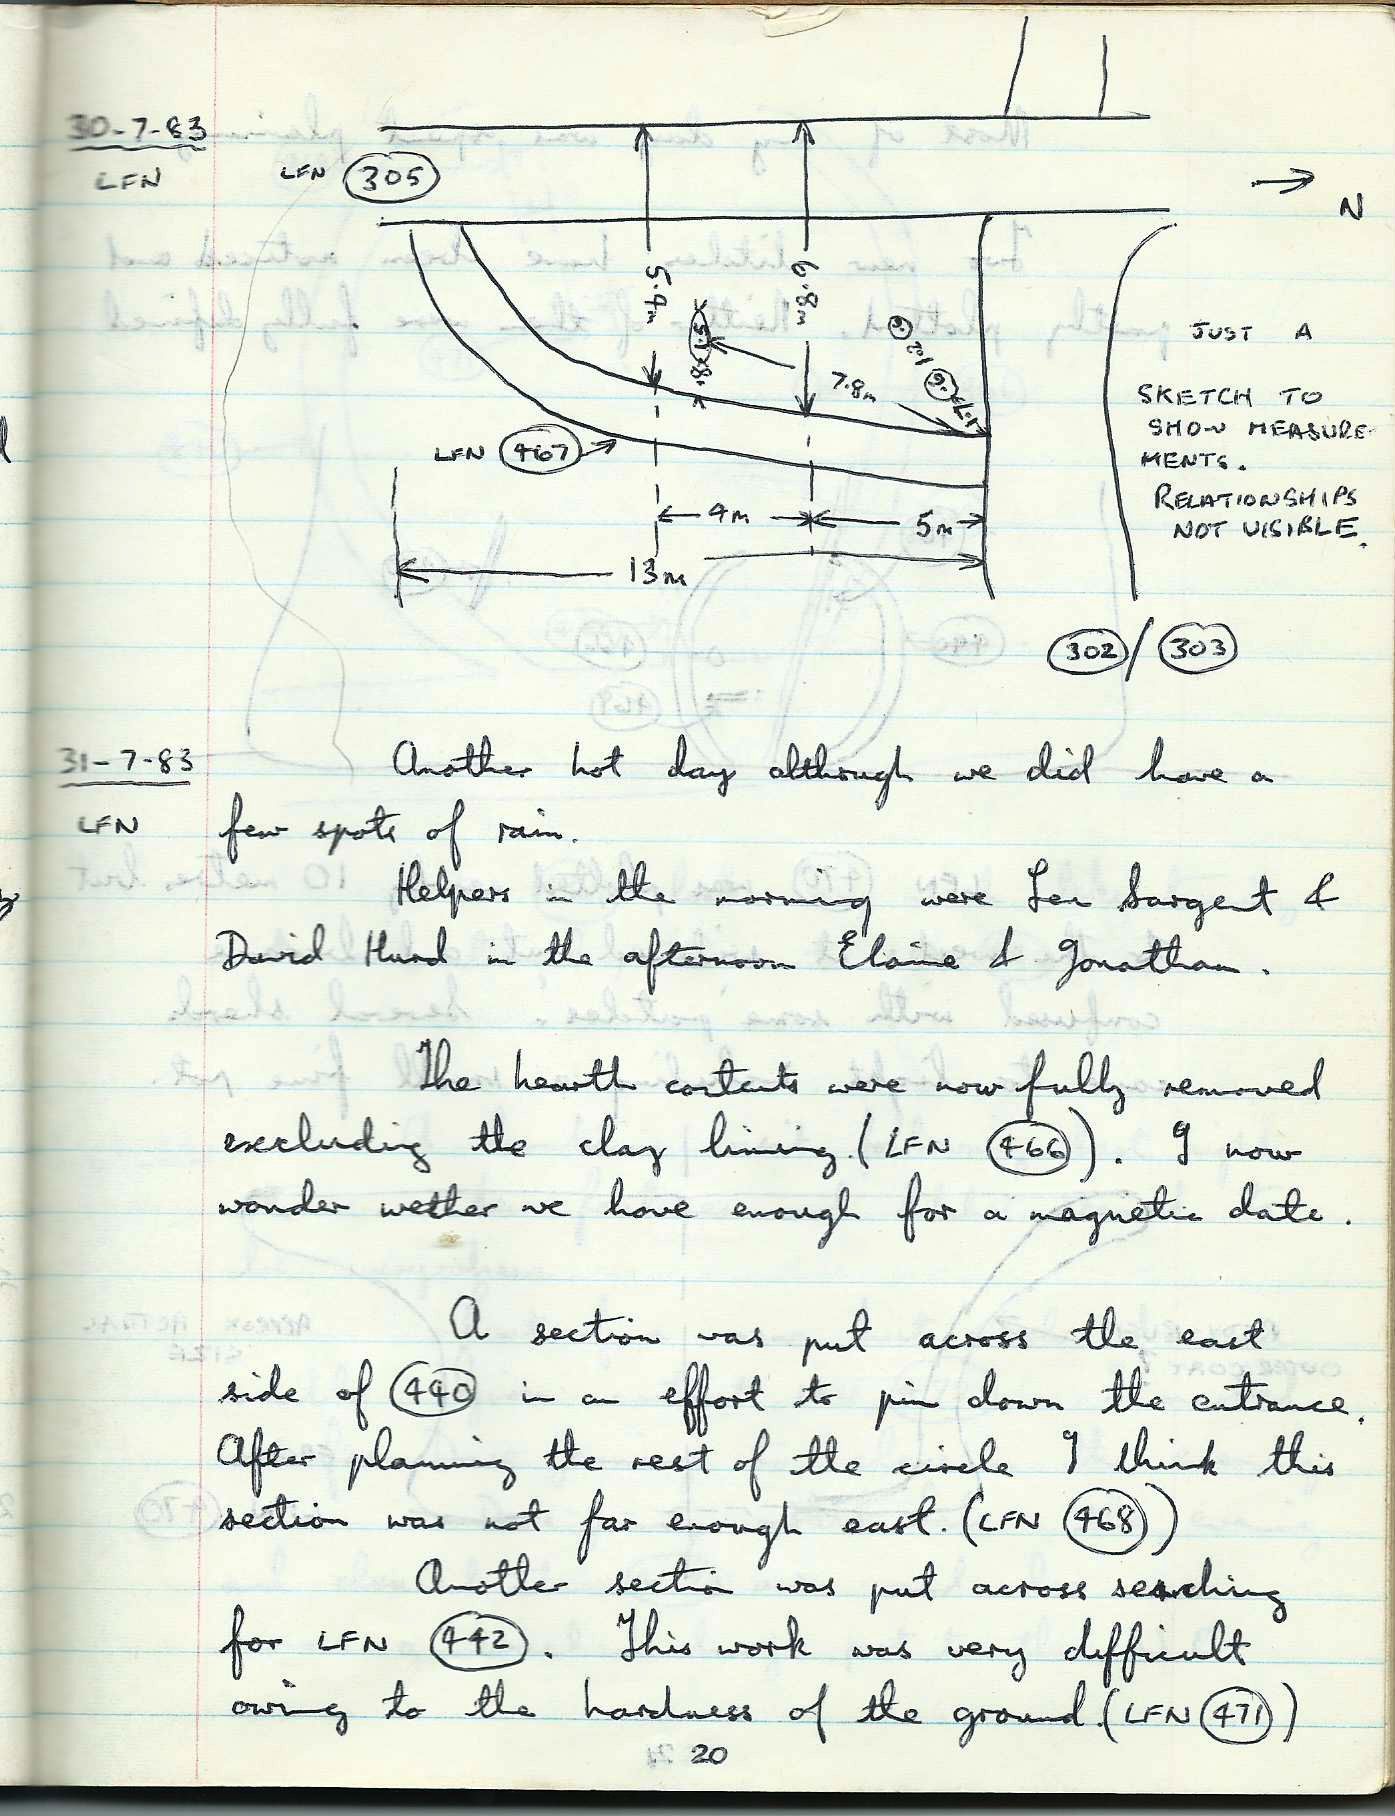 30-7-83
LFN
LFN 305
N
5.4m
6.8m
7.8m
JUST A
SKETCH TO
SHOW MEASURE-
MENTS.
RELATIONSHIPS
NOT VISIBLE.
LFN 467
4m
5m
13m
302 / 303
31-7-83
LFN
Another hot day although we did have a
few spots of rain.
Helpers in the morning were Len Sargent &
David Hurd in the afternoon Elaine & Jonathan.
The hearth contents were now fully removed
excluding the clay lining. (LFN 466). I now
wonder wether we have enough for a magnetic date.
A section was put across the east
side of 440 in an effort to pin down the entrance.
After planning the rest of the circle I think this
section was not far enough east. (LFN 468)
Another section was put across searching
for LFN 442. This work was very difficult
owing to the hardness of the ground. (LFN 471)
20